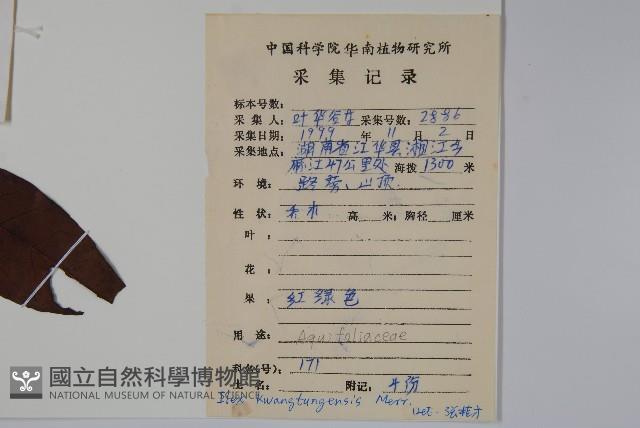 中国科学院华南植物研究所
采集记录
标本号数:
采集人: 叶华谷等 采集号数: 2886
采集日期: 1999 年 11 月 2 日
采集地点: 湖南省江华县湘江乡
麻江47公里处 海拨 1300 米
环境: 路旁、山顶.
性状: 乔木 高 米; 胸径 厘米
叶:
花:
果: 红绿色
用途:
Aquifoliaceae
科名(号): 171
土名: 附记: 4份
Ilex Kwangtungensis Merr.
國立自然科學博物館
NATIONAL MUSEUM OF NATURAL SCIENCE